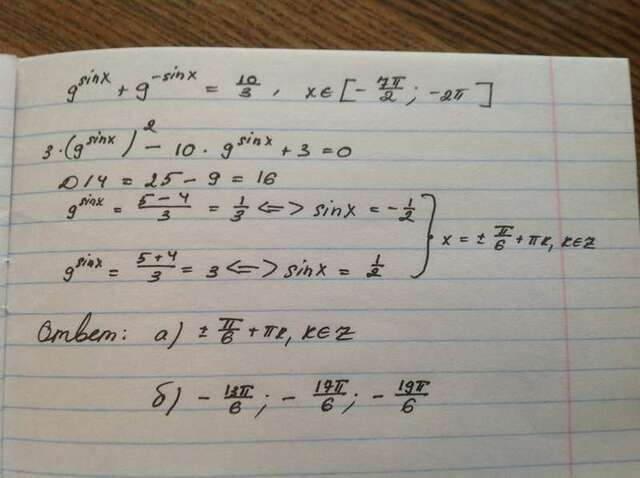 9^sinx + 9^-sinx = 10/3, x∈[-7π/2; -2π]
3·(9^sinx)^2 - 10·9^sinx + 3 = 0
D/4 = 25 - 9 = 16
9^sinx = (5-4)/3 = 1/3 <=> sinx = -1/2
9^sinx = (5+4)/3 = 3 <=> sinx = 1/2 } x = ±π/6 + πk, k∈Z
Ответ: а) ±π/6 + πk, k∈Z
б) -13π/6; -17π/6; -19π/6